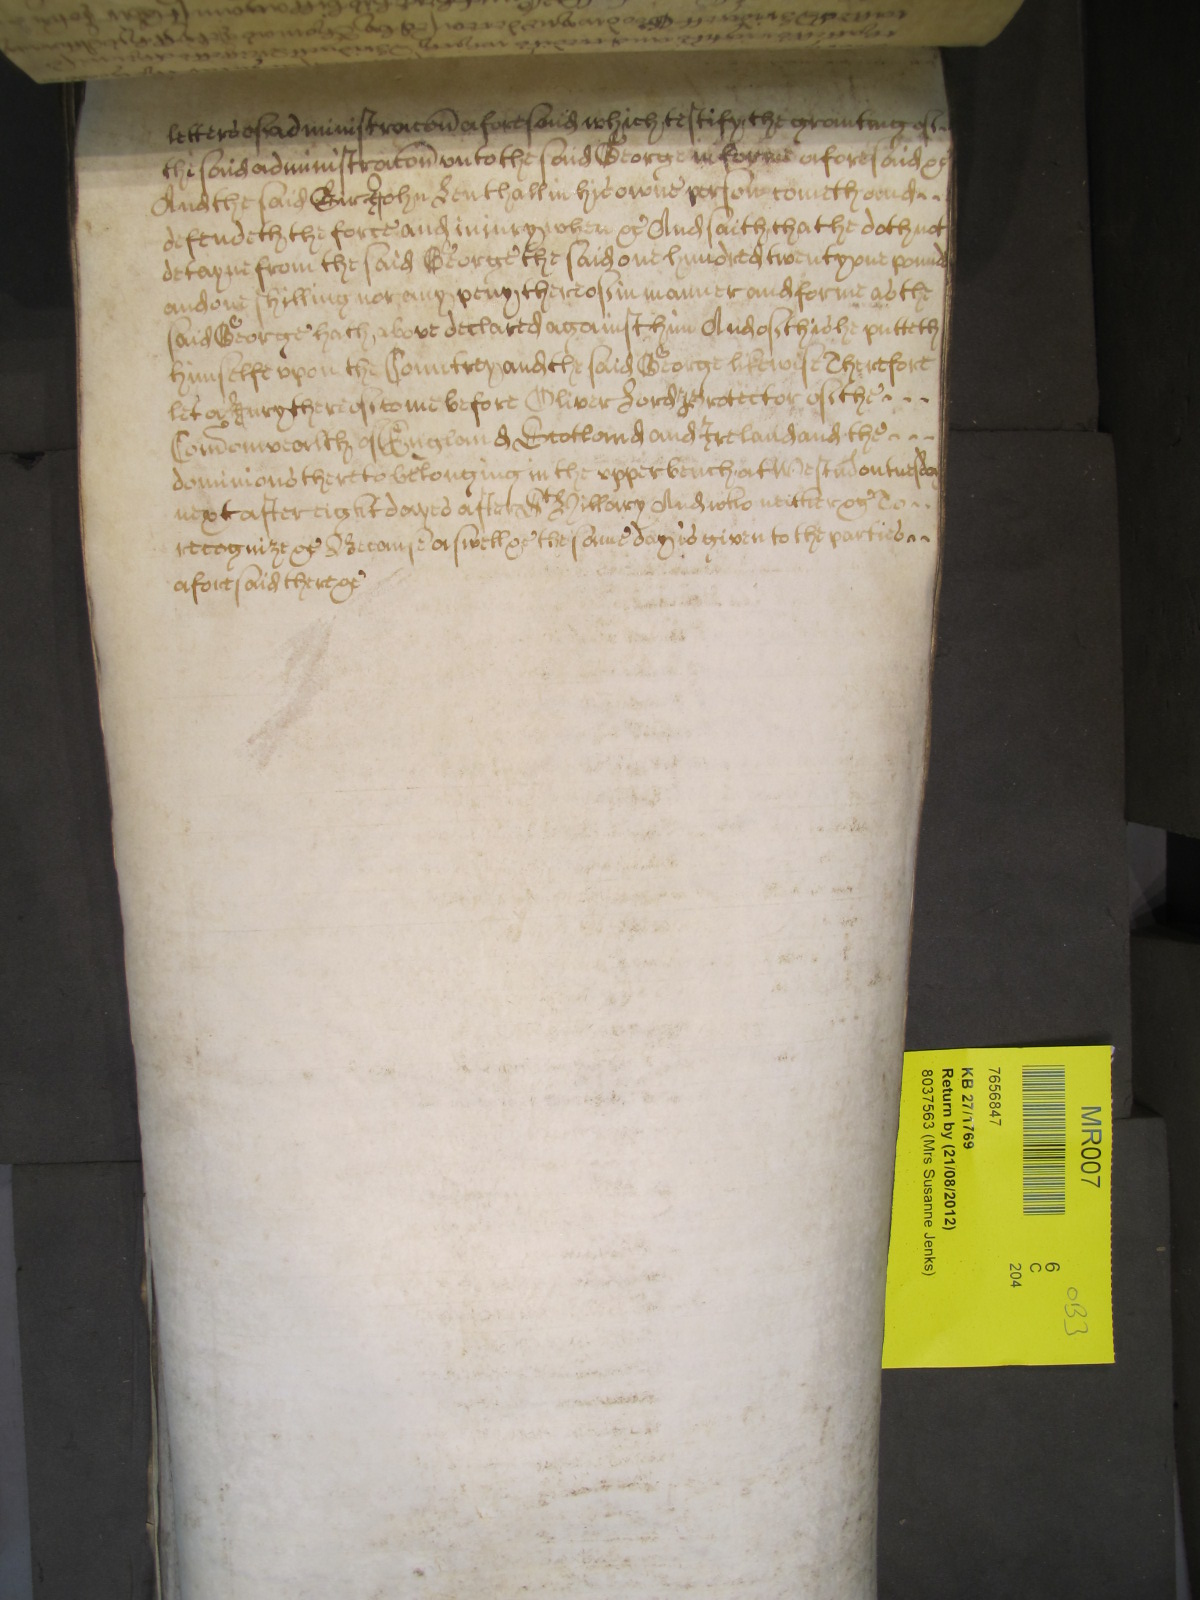 letters of administracoñ aforesaid which testify the granting of
the said administracoñ unto the said George in forme aforesaid &c
And the said Sir John Lenthall in his owne person cometh and
defendeth the force and iniury when &c And saith that he doth not
detayne from the said George the said one hundred twenty one pound
and one shilling nor any peny thereof in manner and forme as the
said George hath above declared against him And of this he putteth
himselfe upon the Countrey and the said George likewise Therefore
let a Jury thereof come before Oliver Lord Protector of the
Com̃onwealth of England Scotland and Ireland and the
dominions thereto belonging in the upper bench at Westm̃ on tuesday
next after eight dayes of St Hillary And who neither &c To
recognize &c Because aswell &c the same day is given to the parties
aforesaid there &c
MR007
6
C
204
083
7656847
KB 27/1769
Return by (21/08/2012)
8037563 (Mrs Susanne Jenks)